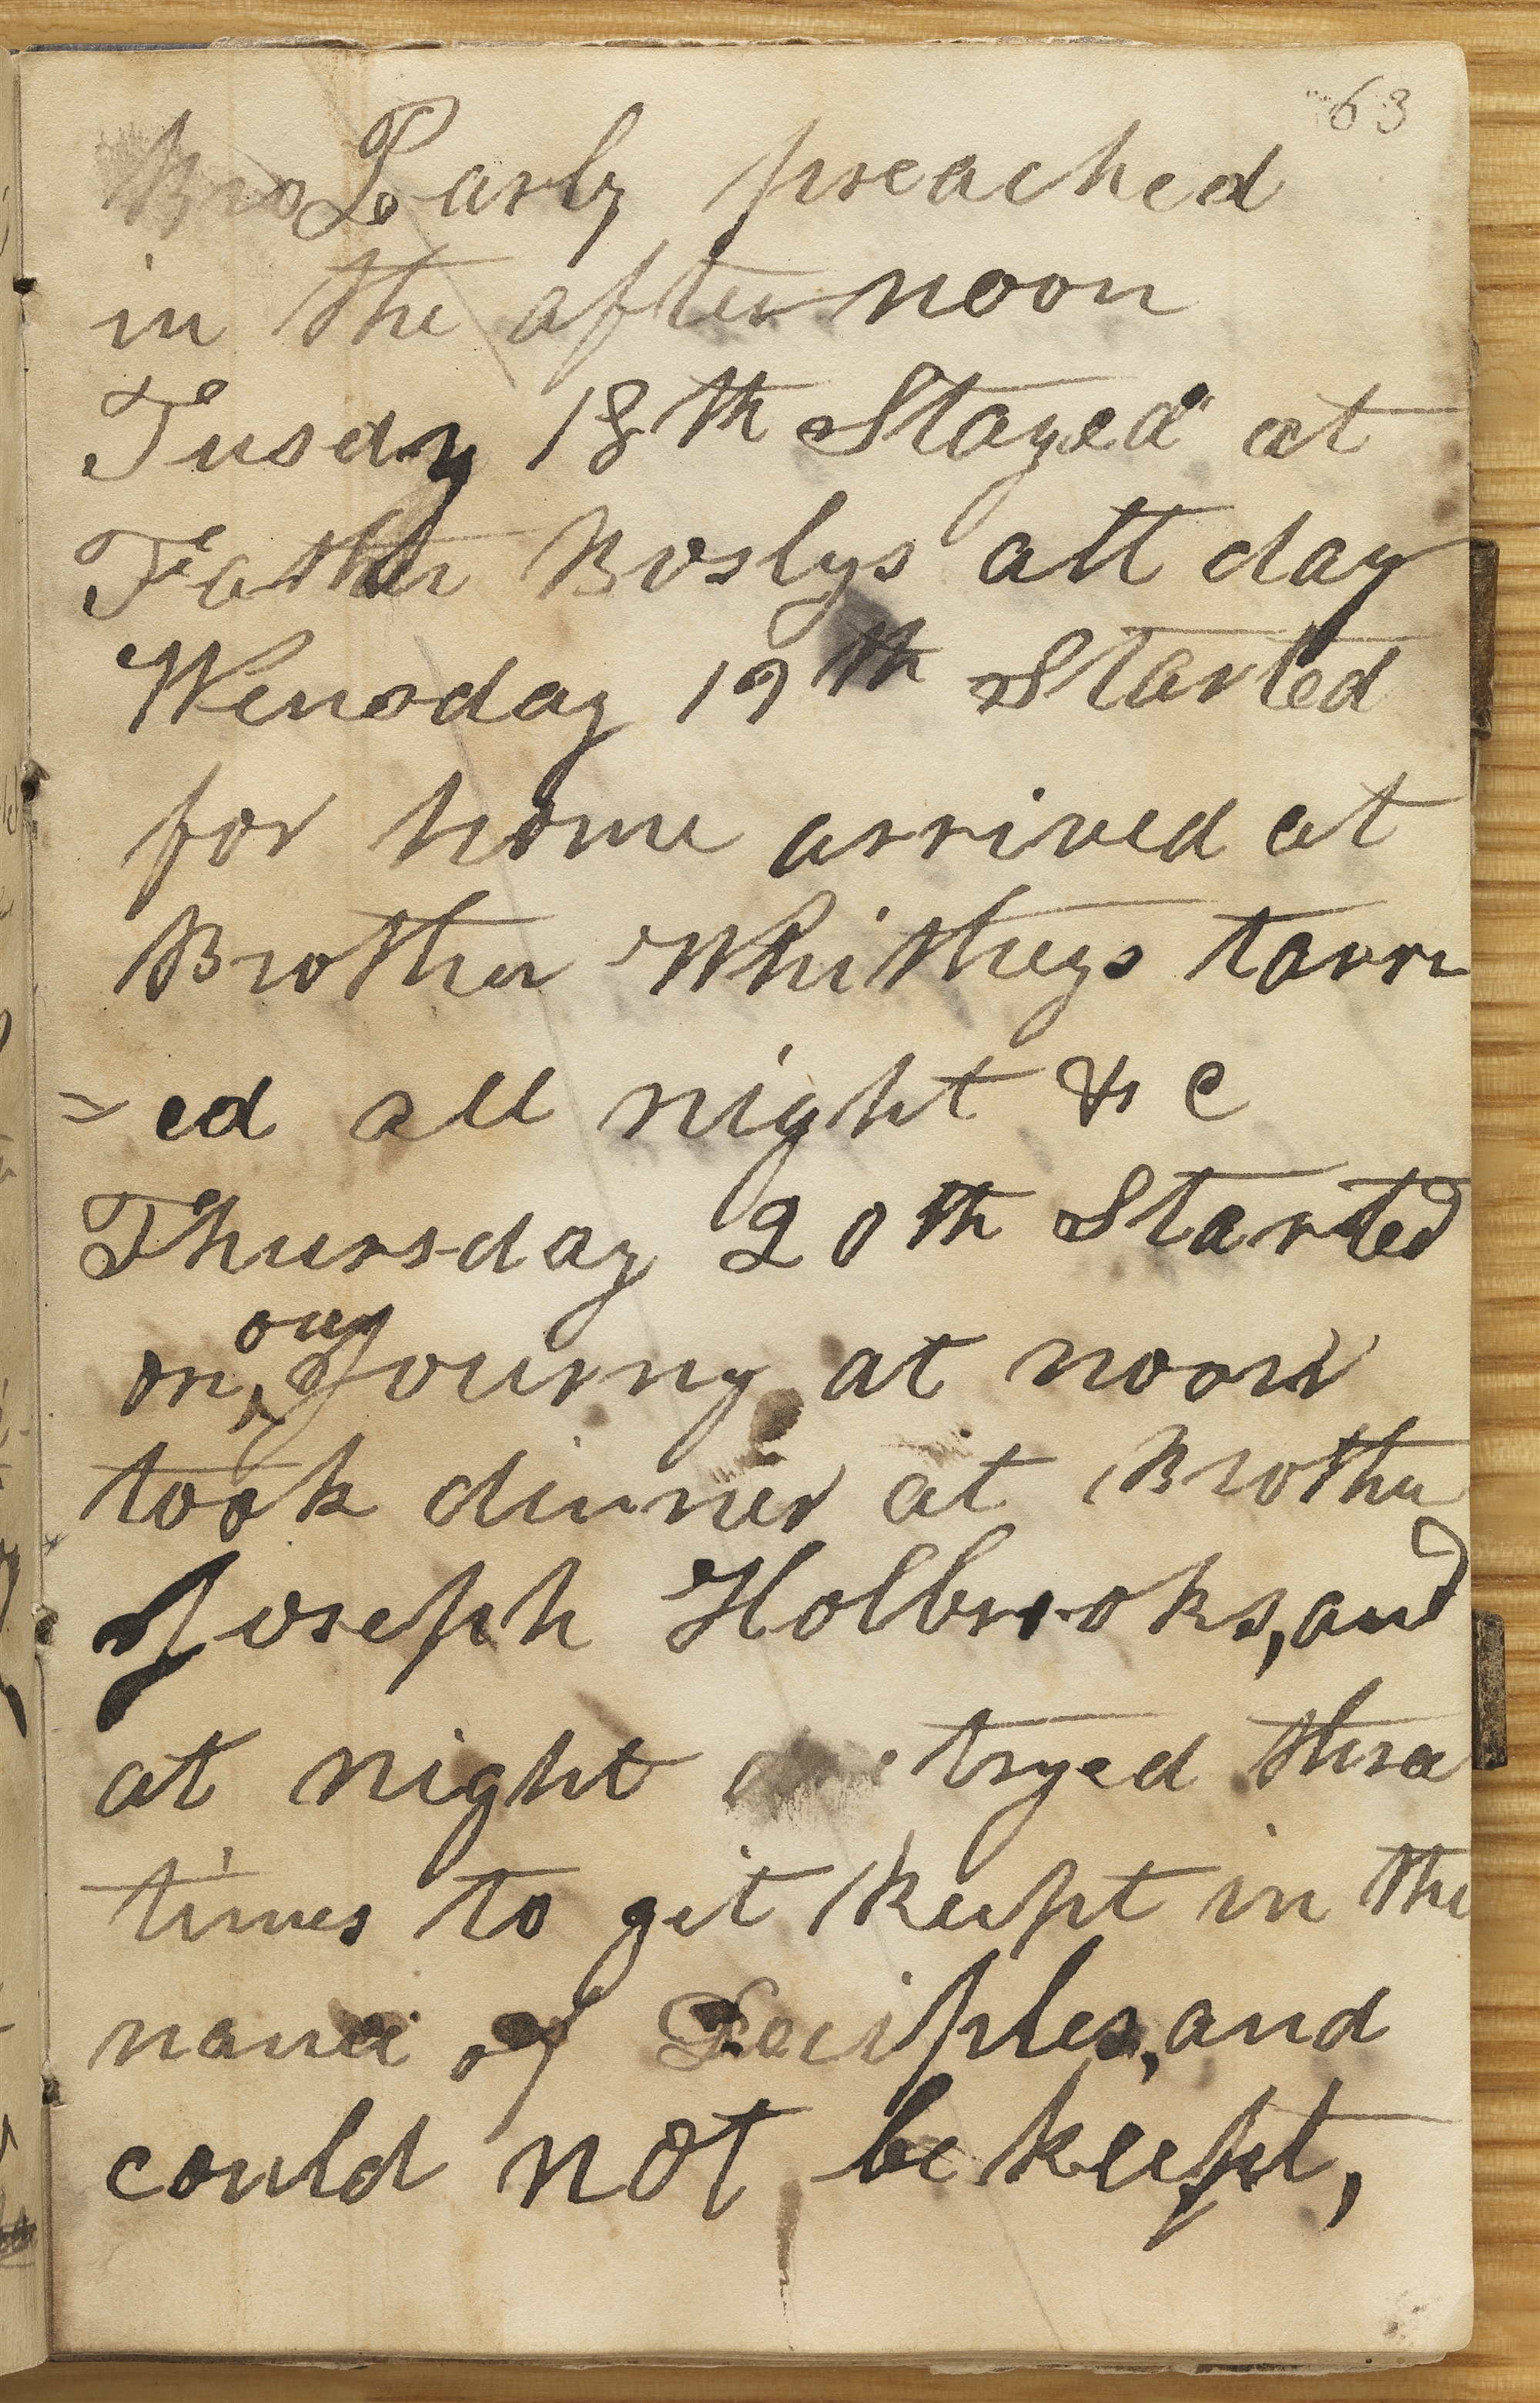 63
Bro Parly preached
in the after noon
Tusdy 18th Stayed at
Father Boslys all day
Wensday 19th Started
for home arrived at
Brother Whitheys tarri
=ed all night & c
Thursday 20th Started
on our Journy at noon
took dinner at Brother
Joseph Holbrooks, and
at night tryed three
times to git keept in the
name of Deciples, and
could not be keept,